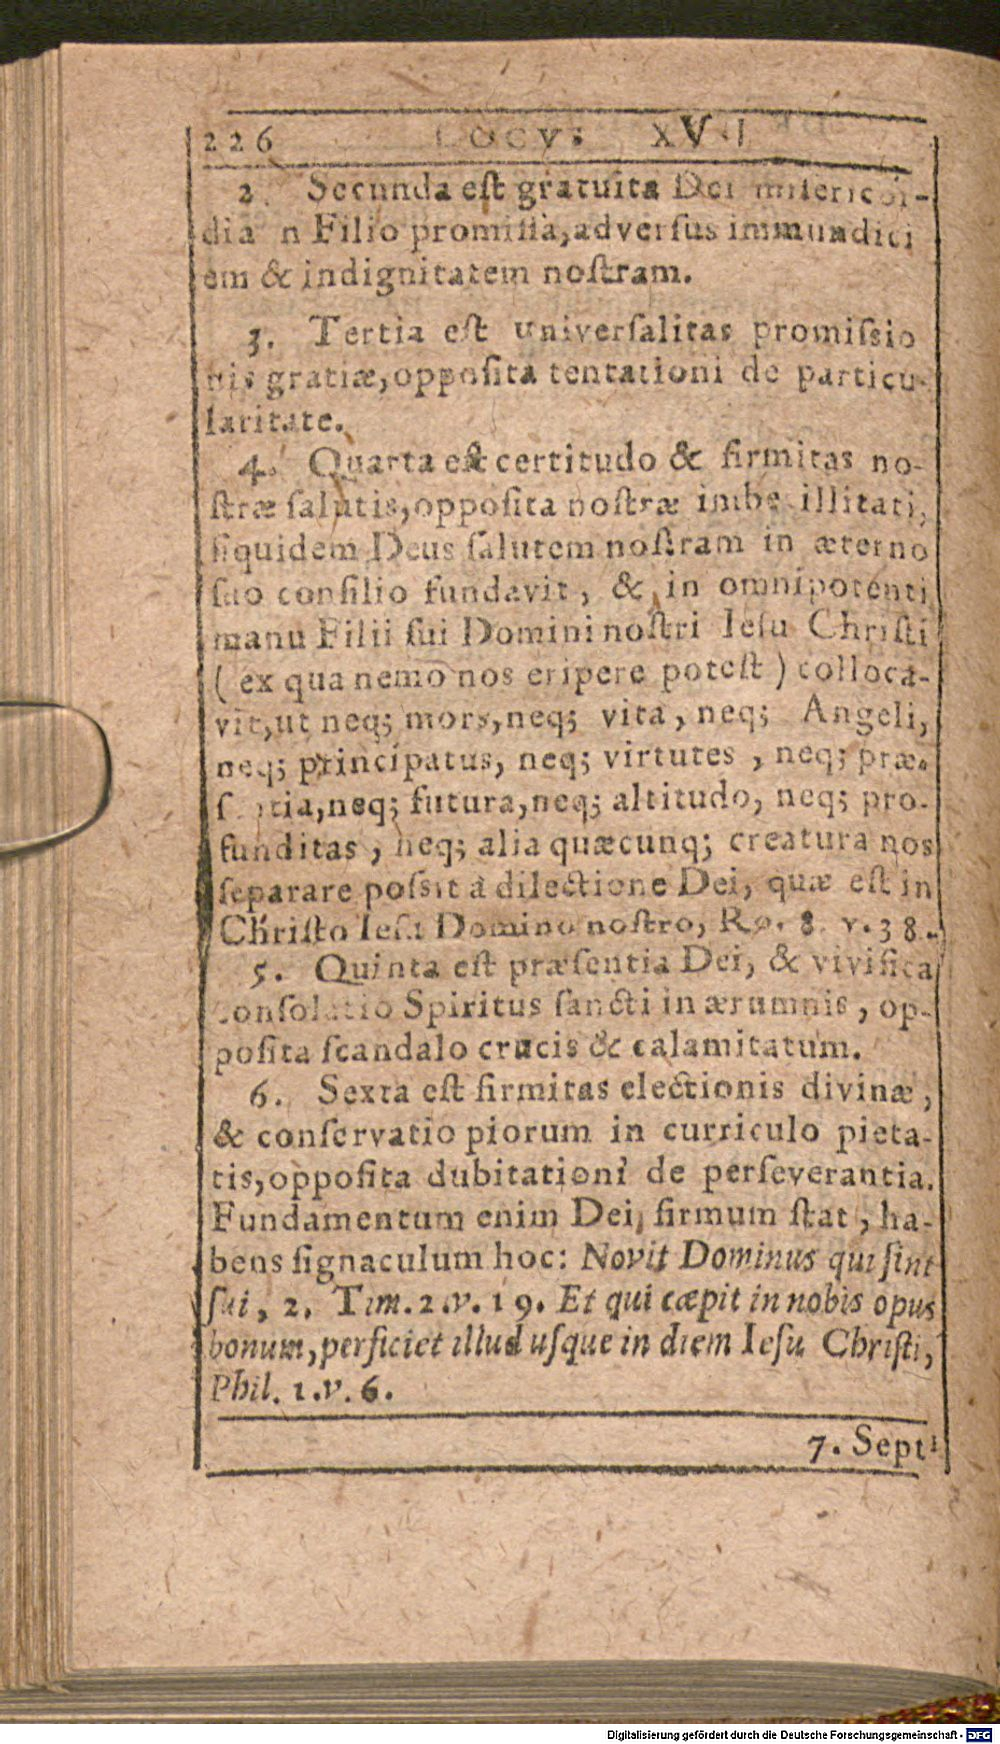 226 LOCVS XVII
2. Secunda est gratuita Dei misericor-
dia in Filio promissa, adversus immundici
em & indignitatem nostram.
3. Tertia est universalitas promissio
nis gratiæ, opposita tentationi de particu-
laritate.
4. Quarta est certitudo & firmitas no-
stræ salutis, opposita nostræ imbecillitati,
siquidem Deus salutem nostram in æterno
suo consilio fundavit, & in omnipotenti
manu Filii sui Domini nostri Iesu Christi
(ex qua nemo nos eripere potest) colloca-
vit, ut neq; mors, neq; vita, neq; Angeli,
neq; principatus, neq; virtutes, neq; præ-
sentia, neq; futura, neq; altitudo, neq; pro-
funditas, neq; alia quæcunq; creatura nos
separare possit â dilectione Dei, quæ est in
Christo Iesu Domino nostro, Ro. 8. v. 38.
5. Quinta est præsentia Dei, & vivifica
consolatio Spiritus sancti in ærumnis, op-
posita scandalo crucis & calamitatum.
6. Sexta est firmitas electionis divinæ,
& conservatio piorum in curriculo pieta-
tis, opposita dubitationi de perseverantia.
Fundamentum enim Dei, firmum stat, ha-
bens signaculum hoc: Novit Dominus qui sint
sui, 2. Tim. 2. v. 19. Et qui cæpit in nobis opus
bonum, perficiet illud usque in diem Iesu Christi,
Phil. 1. v. 6.
7. Septi
Digitalisierung gefördert durch die Deutsche Forschungsgemeinschaft - DFG